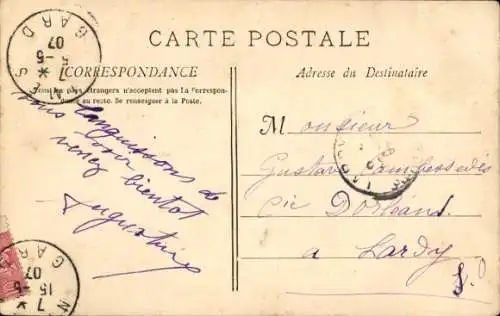 CARTE POSTALE
CORRESPONDANCE
Tous les pays étrangers n'acceptent pas la Correspon-
dance au recto. Se renseigner à la Poste.
Adresse du Destinataire
nous languissons de
voir
venez bientot
Augustine
Monsieur
Gustave
Cie D'orléans
a Lardy
S. O
NIMES
GARD
7 * 15-5
07
NIMES
GARD
7 * 15-5
07